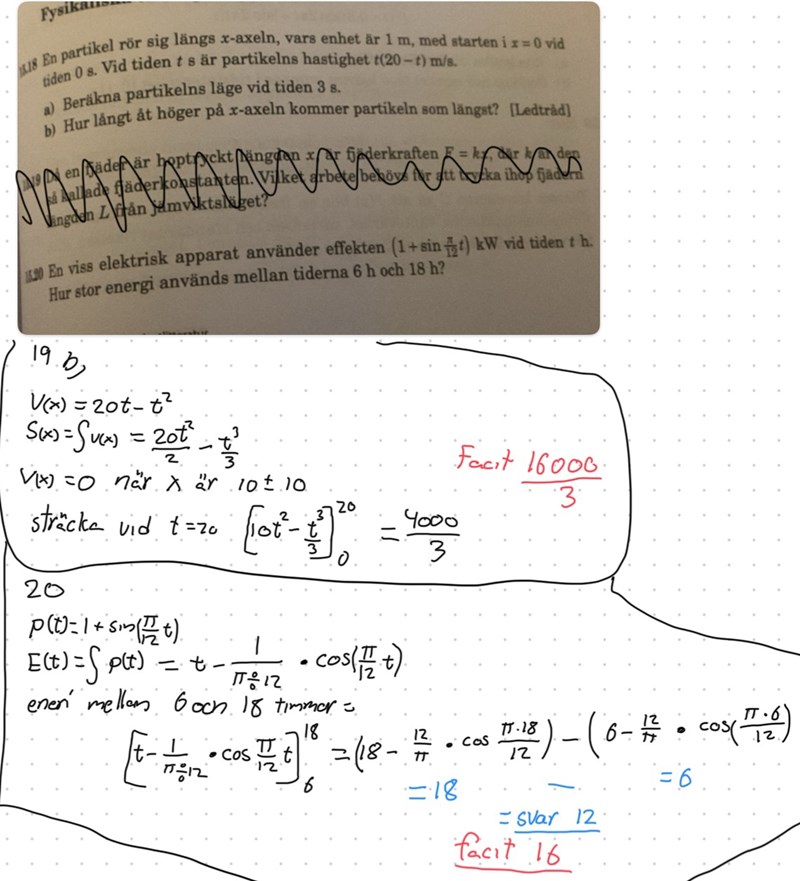 Fysikalisk
18.18 En partikel rör sig längs x-axeln, vars enhet är 1 m, med starten i x = 0 vid
tiden 0 s. Vid tiden t s är partikelns hastighet t(20 − t) m/s.
a) Beräkna partikelns läge vid tiden 3 s.
b) Hur långt åt höger på x-axeln kommer partikeln som längst? [Ledtråd]
en fjäder är hoptryckt längden x är fjäderkraften F = kx, där k är den
så kallade fjäderkonstanten. Vilket arbete behövs för att trycka ihop fjädern
längden L från jämviktsläget?
18.20 En viss elektrisk apparat använder effekten (1 + sin π/12 t) kW vid tiden t h.
Hur stor energi används mellan tiderna 6 h och 18 h?
19 b,
V(x) = 20t − t²
S(x) = ∫v(x) = 20t²/2 − t³/3
V(x) = 0 när x är 10 ± 10
Facit 16000/3
sträcka vid t=20 [10t² − t³/3]₀²⁰ = 4000/3
20
P(t) = 1 + sin(π/12 t)
E(t) = ∫ p(t) = t − 1/(π÷12) · cos(π/12 t)
eneri mellan 6 och 18 timmar =
[t − 1/(π÷12) · cos π/12 t]₆¹⁸ = (18 − 12/π · cos π·18/12) − (6 − 12/π · cos(π·6/12)
= 18 − = 6
= svar 12
facit 16